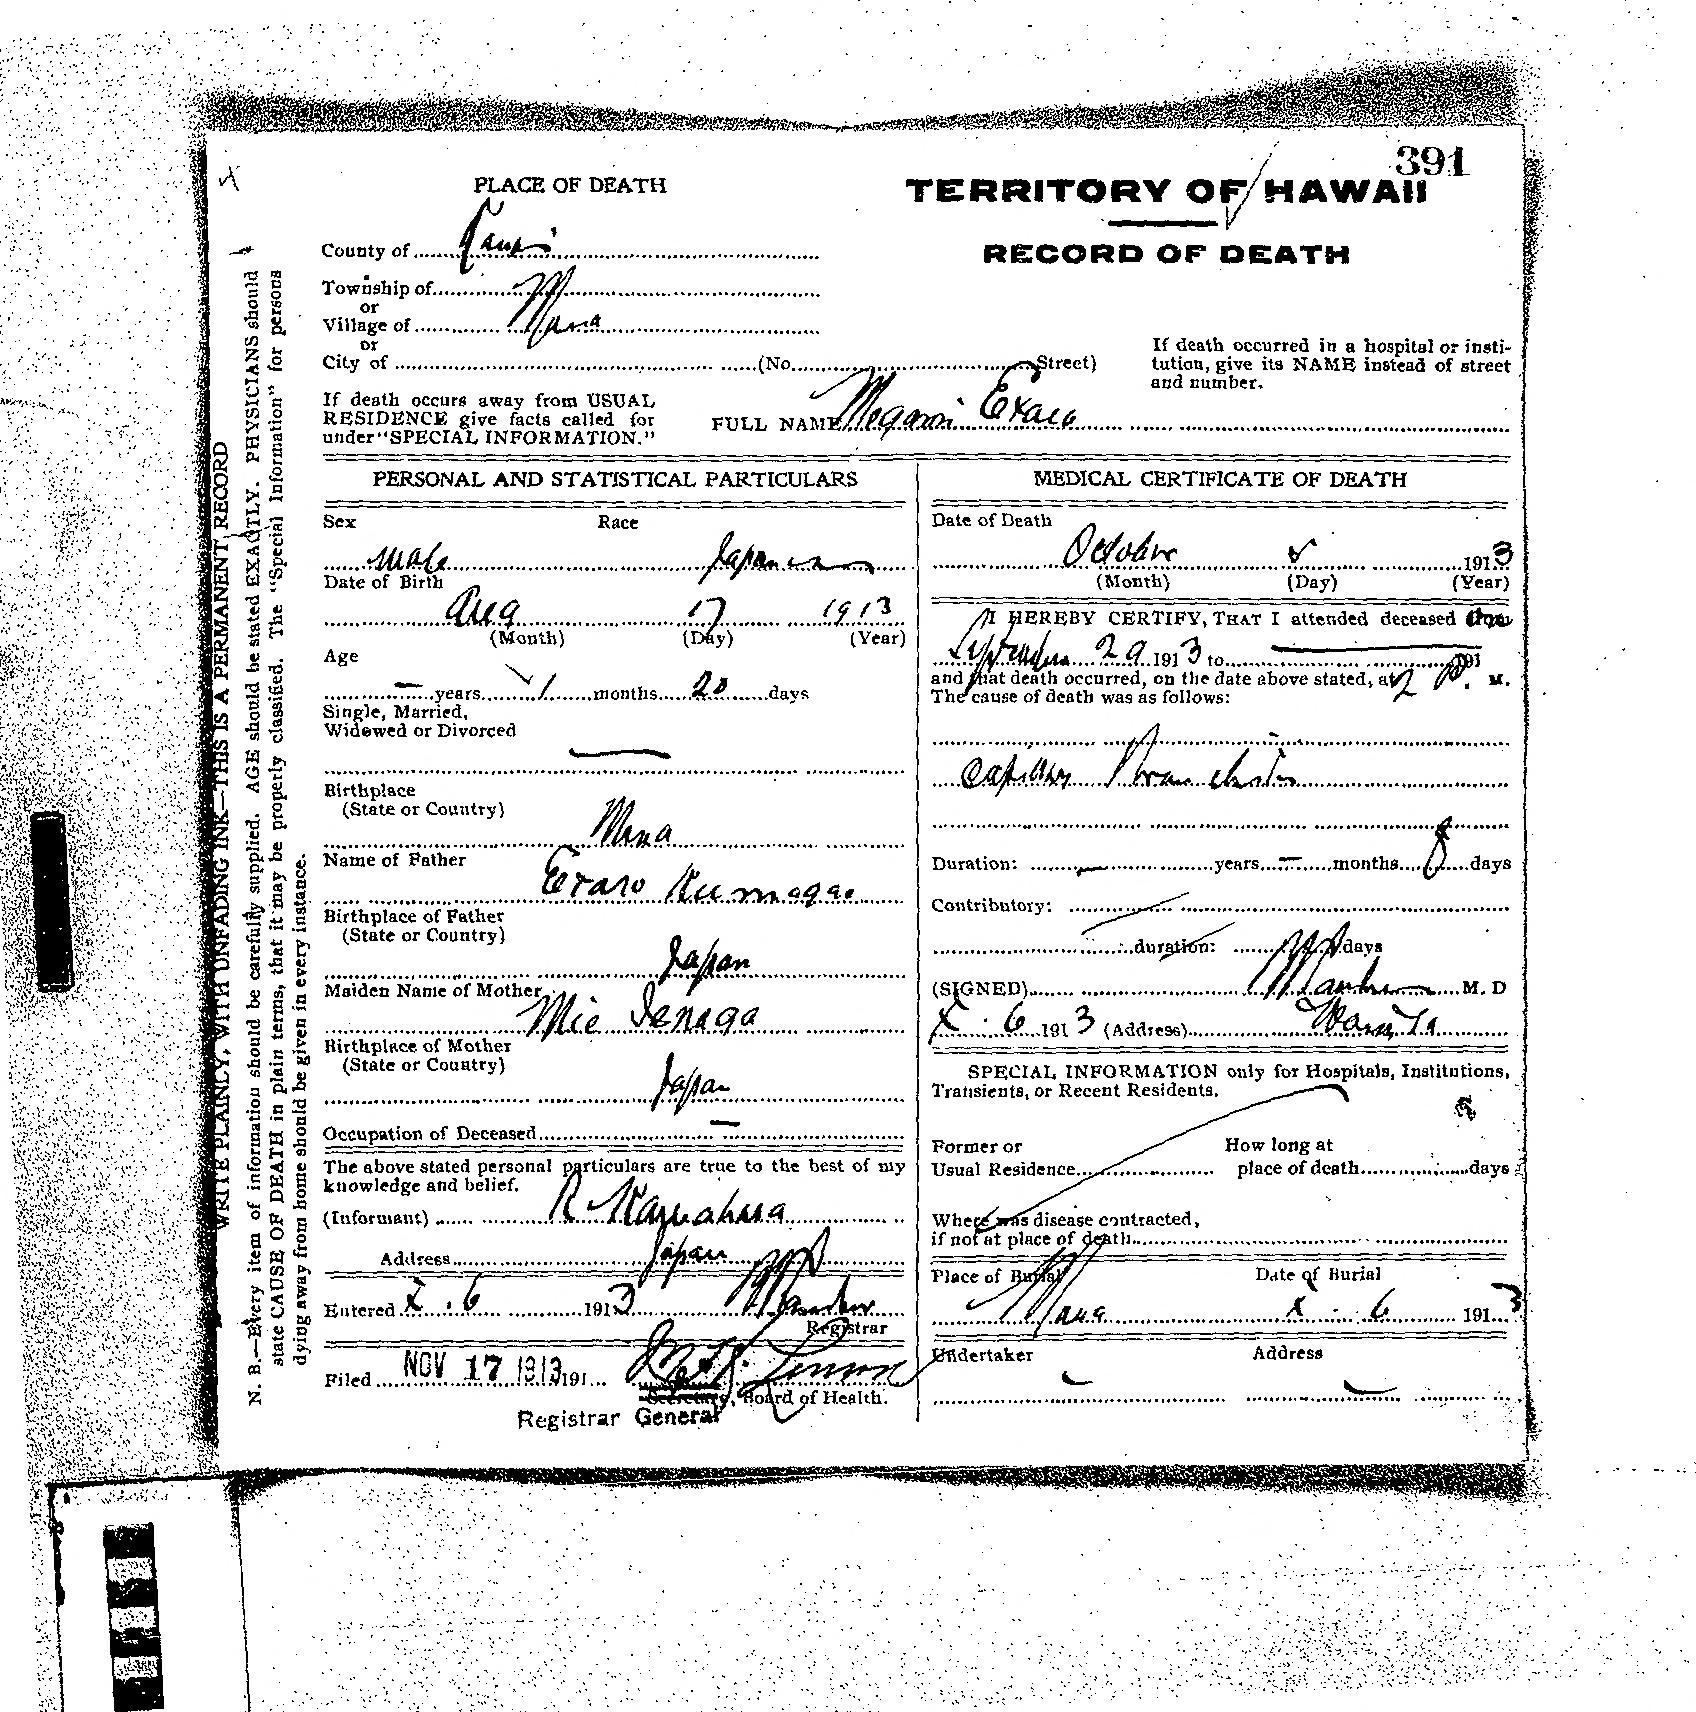 391
PLACE OF DEATH
TERRITORY OF HAWAII
RECORD OF DEATH
County of Kauai
Township of
or
Village of Mana
or
City of (No. Street)
If death occurred in a hospital or insti-
tution, give its NAME instead of street
and number.
If death occurs away from USUAL
RESIDENCE give facts called for
under "SPECIAL INFORMATION."
FULL NAME
PERSONAL AND STATISTICAL PARTICULARS
Sex Race
Male Japanese
Date of Birth
Aug 17 1913
(Month) (Day) (Year)
Age
— years 1 months 20 days
Single, Married,
Widowed or Divorced
—
Birthplace
(State or Country)
Mana
Name of Father
Birthplace of Father
(State or Country)
Japan
Maiden Name of Mother
Mie
Birthplace of Mother
(State or Country)
Japan
Occupation of Deceased —
The above stated personal particulars are true to the best of my
knowledge and belief.
(Informant) R
Address Japan
Entered X . 6 1913
Registrar
Filed NOV 17 1913 191
Secretary, Board of Health.
Registrar General
MEDICAL CERTIFICATE OF DEATH
Date of Death
October 1913
(Month) (Day) (Year)
I HEREBY CERTIFY, THAT I attended deceased
September 29 1913 to — 191
and that death occurred, on the date above stated, at 2 P. M.
The cause of death was as follows:
Capillary Bronchitis
Duration: — years — months 8 days
Contributory:
duration: days
(SIGNED) M. D
X . 6 1913 (Address) Waimea
SPECIAL INFORMATION only for Hospitals, Institutions,
Transients, or Recent Residents.
Former or How long at
Usual Residence place of death days
Where was disease contracted,
if not at place of death
Place of Burial Date of Burial
Mana X . 6 1913
Undertaker Address
WRITE PLAINLY, WITH UNFADING INK—THIS IS A PERMANENT RECORD
N. B.—Every item of information should be carefully supplied. AGE should be stated EXACTLY. PHYSICIANS should
state CAUSE OF DEATH in plain terms, that it may be properly classified. The "Special Information" for persons
dying away from home should be given in every instance.